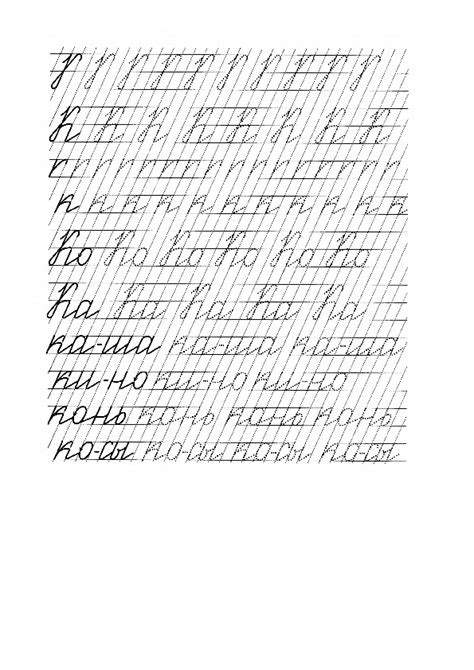 К К К К К К К К
к к к к к к к к к к к
Ко Ко Ко Ко Ко Ко
Ка Ка Ка Ка Ка
ка-ша ка-ша ка-ша
ки-но ки-но ки-но
конь конь конь конь
ко-сы ко-сы ко-сы ко-сы